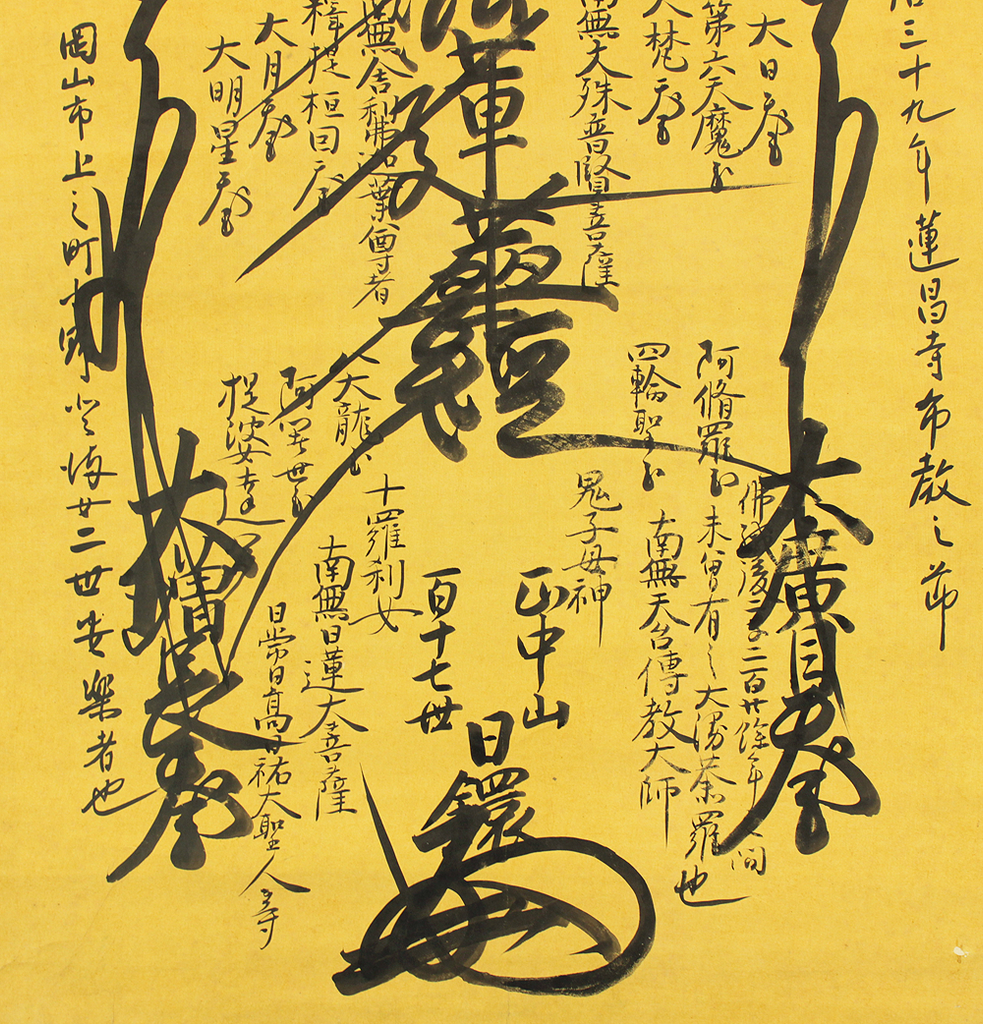 三十九年蓮昌寺布教之節
大日天王
第六天魔王
大梵天王
南無大殊普賢菩薩
蓮華經
南無舎利弗迦葉尊者
釋提桓因天王
大月天王
大明星天王
岡山市上之町
廿二世安樂者也
大廣目天王
佛滅後二千二百廿餘年之間
未曾有之大漫荼羅也
阿脩羅王
四輪聖王
鬼子母神
南無天台傳教大師
正中山
百十七世
日鐶
十羅刹女
八大龍王
阿闍世王
提婆達
南無日蓮大菩薩
日常日高日祐大聖人等
大增長天王